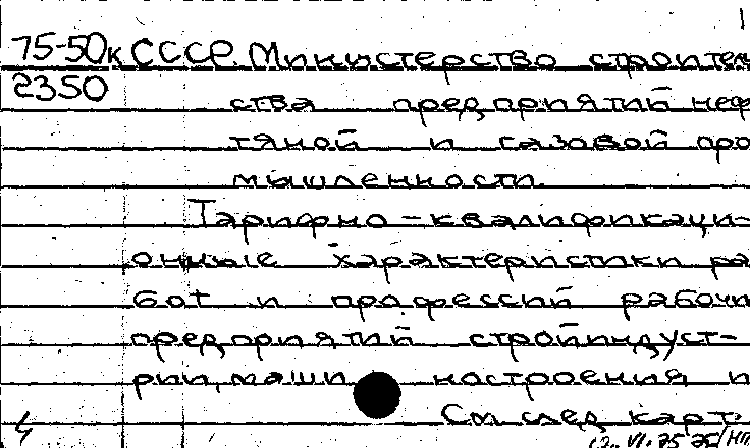 75-50к СССР. Министерство строитель
2350
ства предприятий неф
тяной и газовой про
мышленности.
Тарифно-квалификаци-
онные характеристики ра
бот и профессий рабочи
предприятий стройиндуст-
рии, маши ностроения и
См след карт.
4